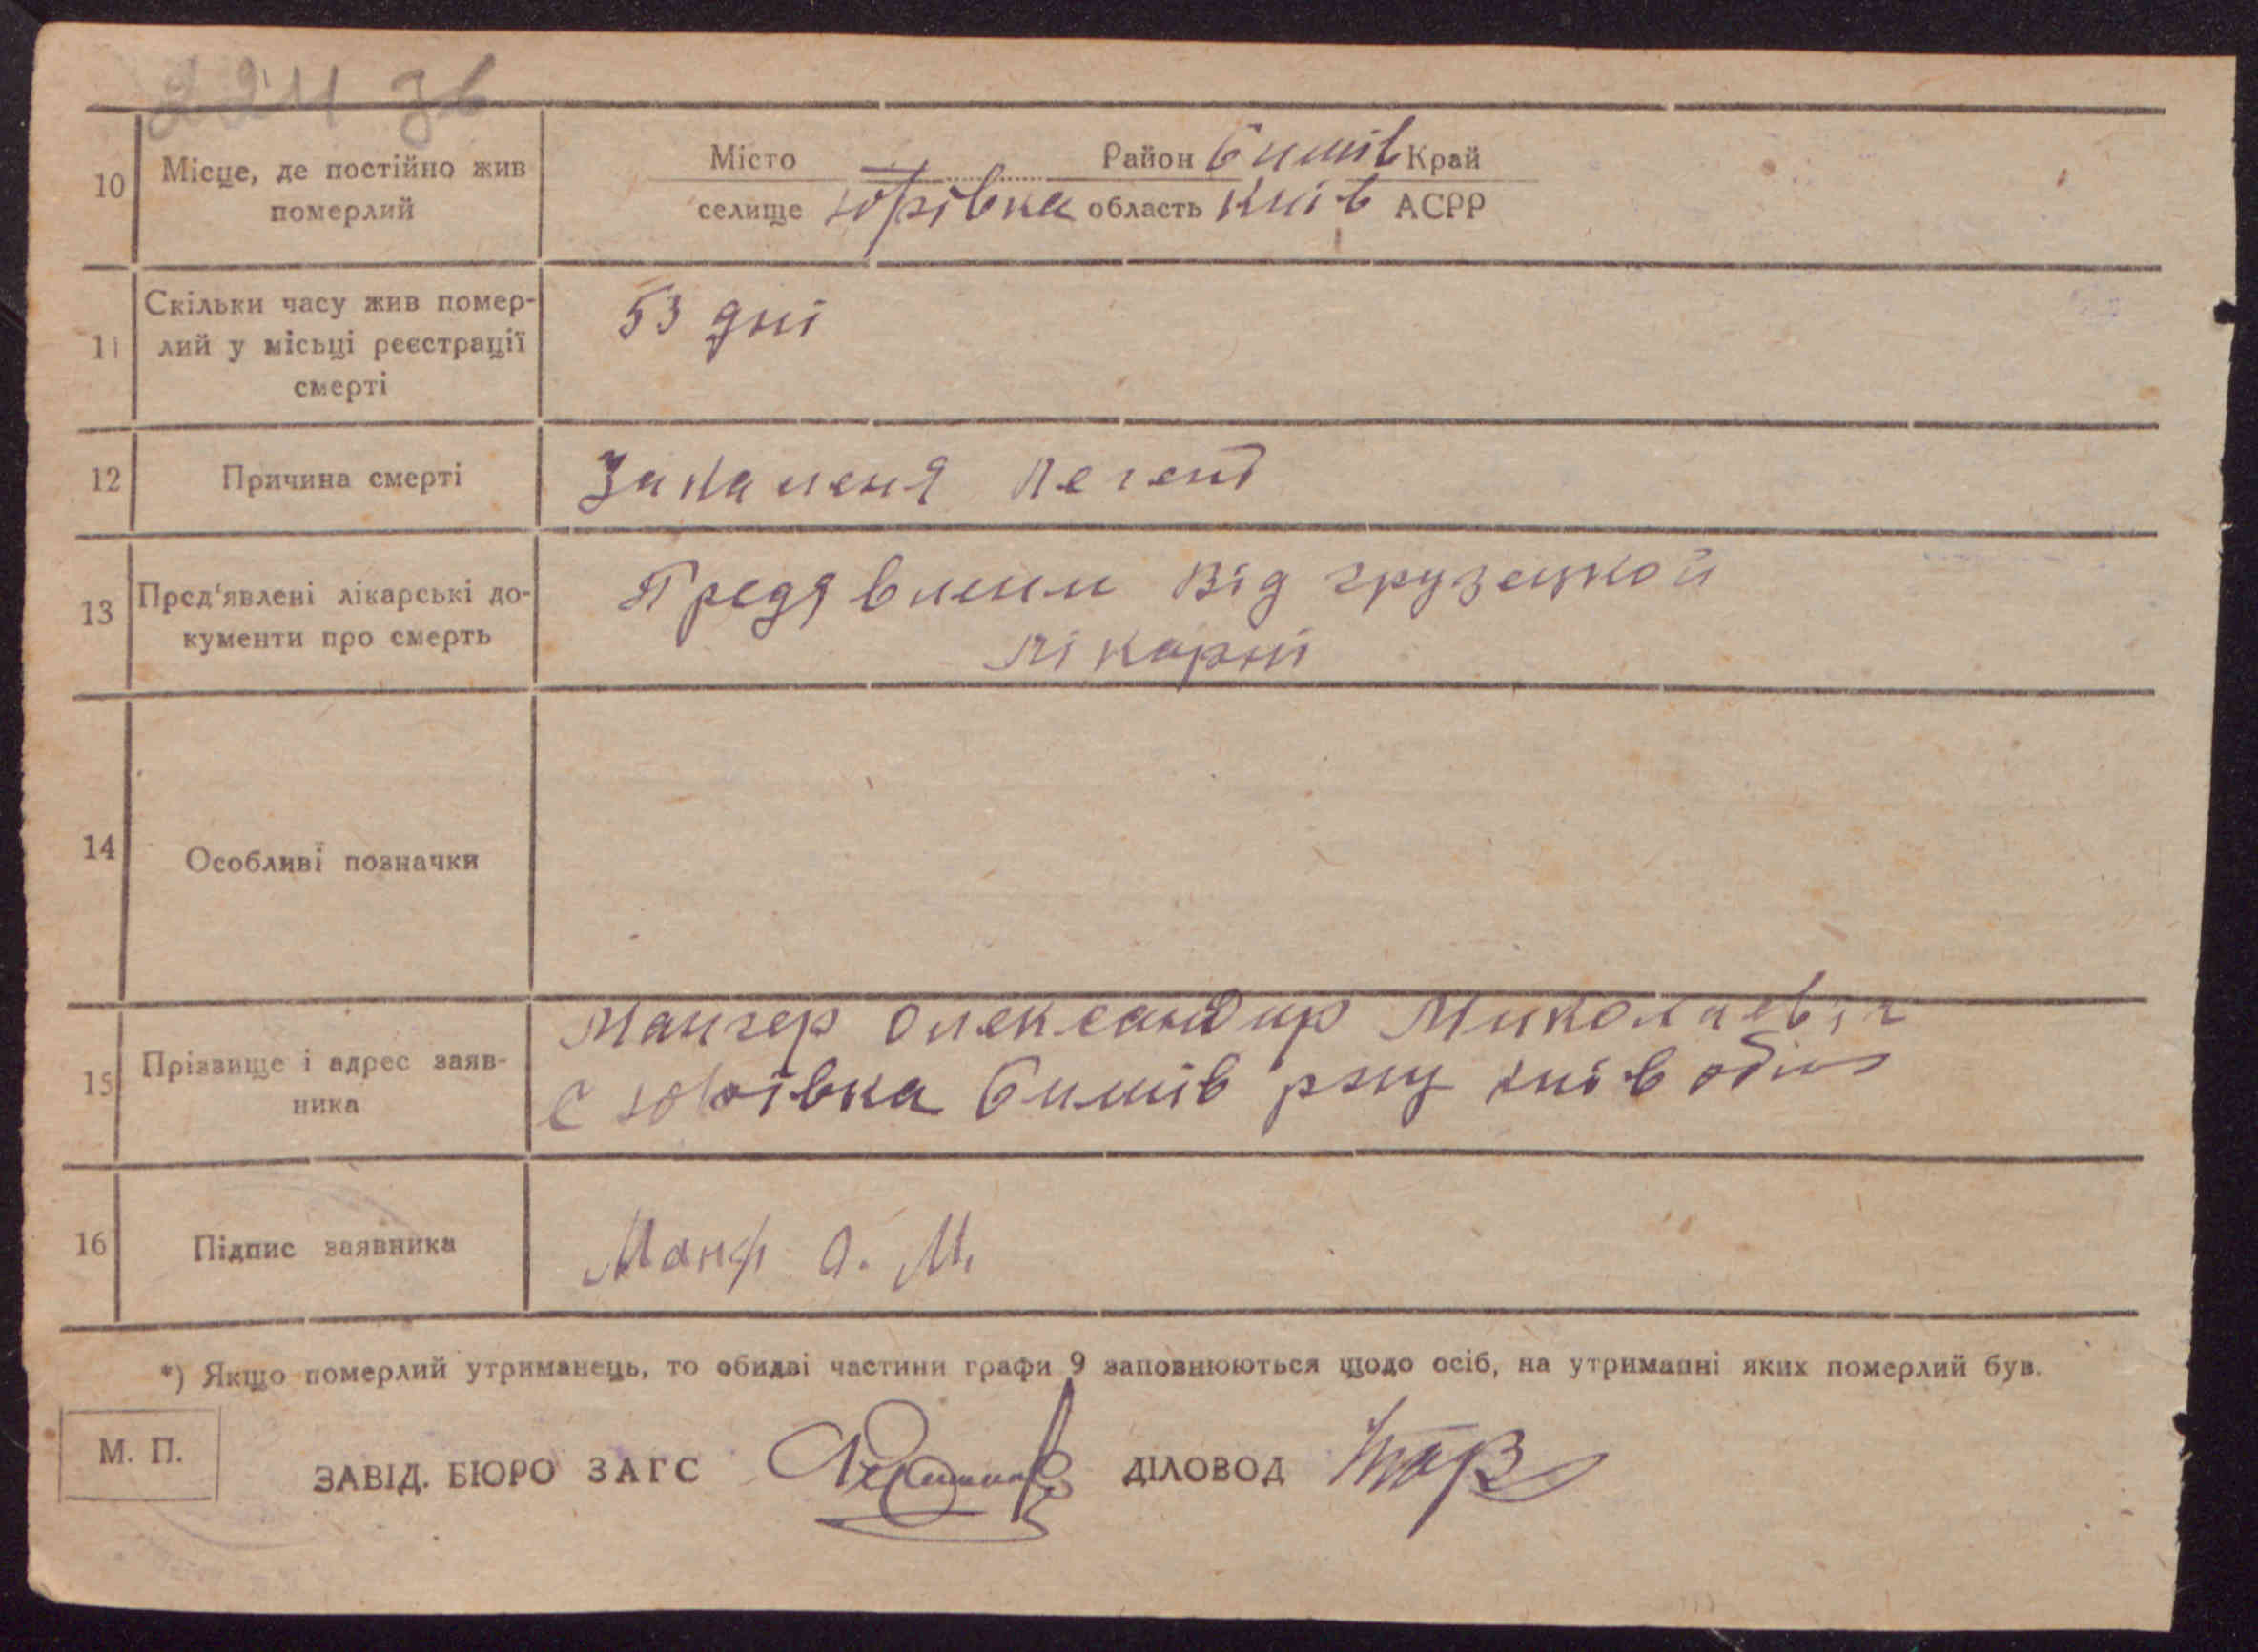 224 зв
10 Місце, де постійно жив померлий
Місто Район Бишів Край
селище Юрівка область Київ АСРР
11 Скільки часу жив помер-
лий у місьці реєстрації
смерті
53 дні
12 Причина смерті
Запаленя легенів
13 Пред'явлені лікарські до-
кументи про смерть
Предявлени Від грузецкой
лікарні
14 Особливі позначки
15 Прізвище і адрес заяв-
ника
Мангер Олександир Миколаевіч
с Юрівка Бишів рну київ обл
16 Підпис заявника
Манг О. М.
*) Якщо померлий утриманець, то обидві частини графи 9 заповнюються щодо осіб, на утриманні яких померлий був.
М. П.
ЗАВІД. БЮРО ЗАГС ДІЛОВОД